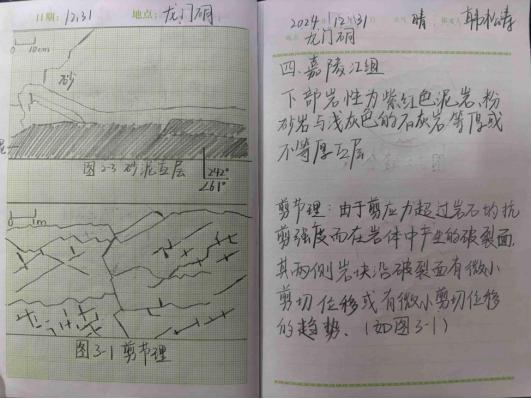 日期: 12.31 地点: 龙门硐
0 10cm
砂
泥
图2-3 砂泥互层
242°
∠61°
0 1m
图3-1 剪节理
2024 12/31 晴 韩松涛
龙门硐
四.嘉陵江组
下部岩性为紫红色泥岩、粉
砂岩与浅灰色的石灰岩等厚或
不等厚互层
剪节理:由于剪应力超过岩石的抗
剪强度而在岩体中产生的破裂面,
其两侧岩块沿破裂面有微小
剪切位移或有微小剪切位移
的趋势、(如图3-1)